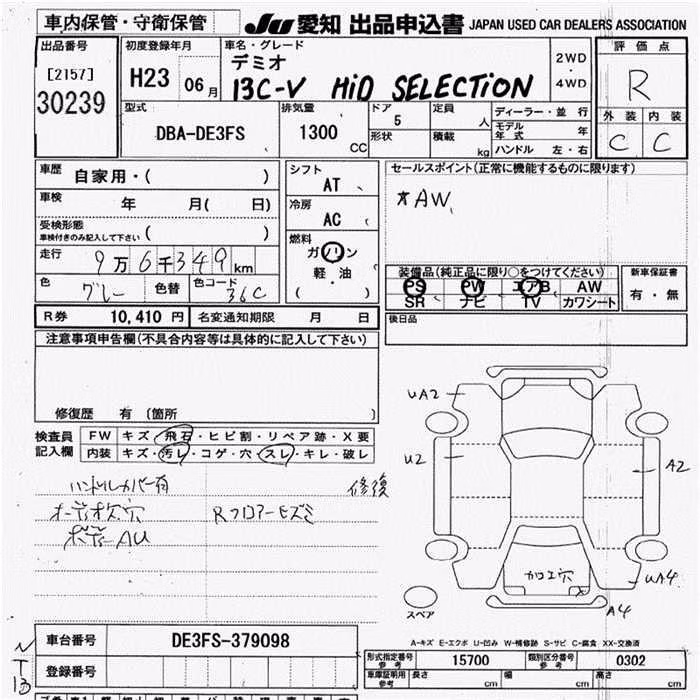 車内保管・守衛保管
JU 愛知 出品申込書 JAPAN USED CAR DEALERS ASSOCIATION
出品番号
[2157]
30239
初度登録年月
H23 06月
車名・グレード
デミオ
13C-V HiD SELECTION
2WD
・
4WD
評価点
R
外装 内装
C C
型式
DBA-DE3FS
排気量
1300 CC
ドア
5
形状
定員
人
積載
kg
ディーラー・並行
モデル年式 年
ハンドル 左・右
車歴
自家用・( )
車検 年 月( 日)
受検形態
車検付きのみ記入して下さい ( )
走行 9万6千349km
色 グレー 色替 色コード 36C
シフト
AT
冷房
AC
燃料
ガソリン
軽・油
( )
セールスポイント(正常に機能するものに限ります)
*AW
装備品(純正品に限り○をつけてください)
PS PW エアB AW
SR ナビ TV カワシート
新車保証書
有・無
R券 10,410円 名変通知期限 月 日
後日品
注意事項申告欄(不具合内容等は具体的に記入して下さい)
修復歴 有 〔箇所 〕
検査員記入欄
FW キズ・飛石・ヒビ割・リペア跡・X要
内装 キズ・汚レ・コゲ・穴・スレ・キレ・破レ
ハンドルカバー有 修復
オーディオ欠穴 Rフロアーヒズミ
ボディーAU
UA2
U2
A2
加工穴
X
UA4
A4
スペア
A-キズ E-エクボ U-凹み W-補修跡 S-サビ C-腐食 XX-交換済
N
T
13
車台番号 DE3FS-379098
登録番号
形式指定番号 参考 15700 類別区分番号 参考 0302
車庫証明用 参考 長さ cm 幅 cm 高さ cm